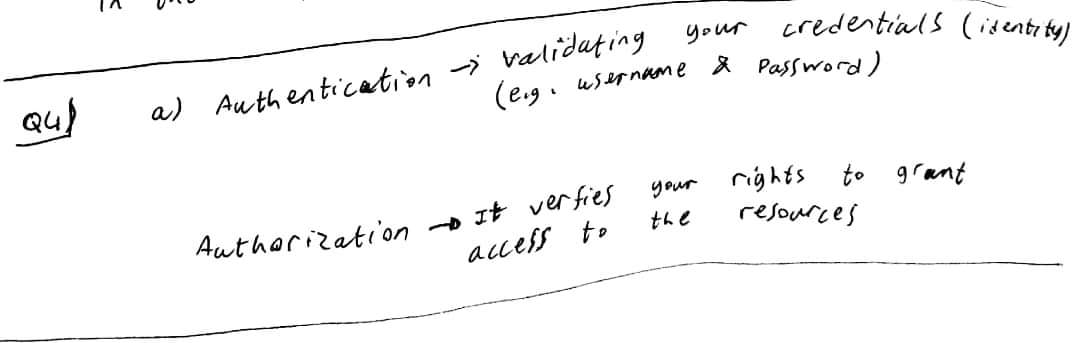 Q4) a) Authentication → validating your credentials (identity)
(e.g. username & Password)
Authorization → It verfies your rights to grant
access to the resources